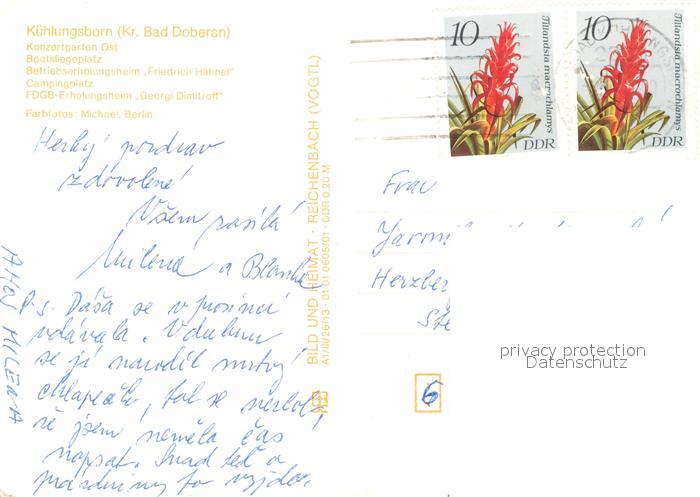 Kühlungsborn (Kr. Bad Doberan)
Konzertgarten Ost
Bootsliegeplatz
Betriebserholungsheim „Friedrich Hähnel"
Campingplatz
FDGB-Erholungsheim „Georgi Dimitroff"
Farbfotos: Michael, Berlin
Hezký pozdrav
z dovolené
Všem posílá
Milena a Blanka
P.s. Dáša se v prosinci
vdávala. V dubnu
se jí narodil mrtvý
chlapeček, tak se nezlob,
že jsem neměla čas
napsat. Snad teď o
prázdniny to vyjde.
AHOJ MILENA
BILD UND HEIMAT · REICHENBACH (VOGTL)
A1/III/26/13 · 01 01 0605/01 · DDR 0,20 M
10
Tillandsia macrochlamys
DDR
10
Tillandsia macrochlamys
DDR
Frau
Herzber
privacy protection
Datenschutz
6